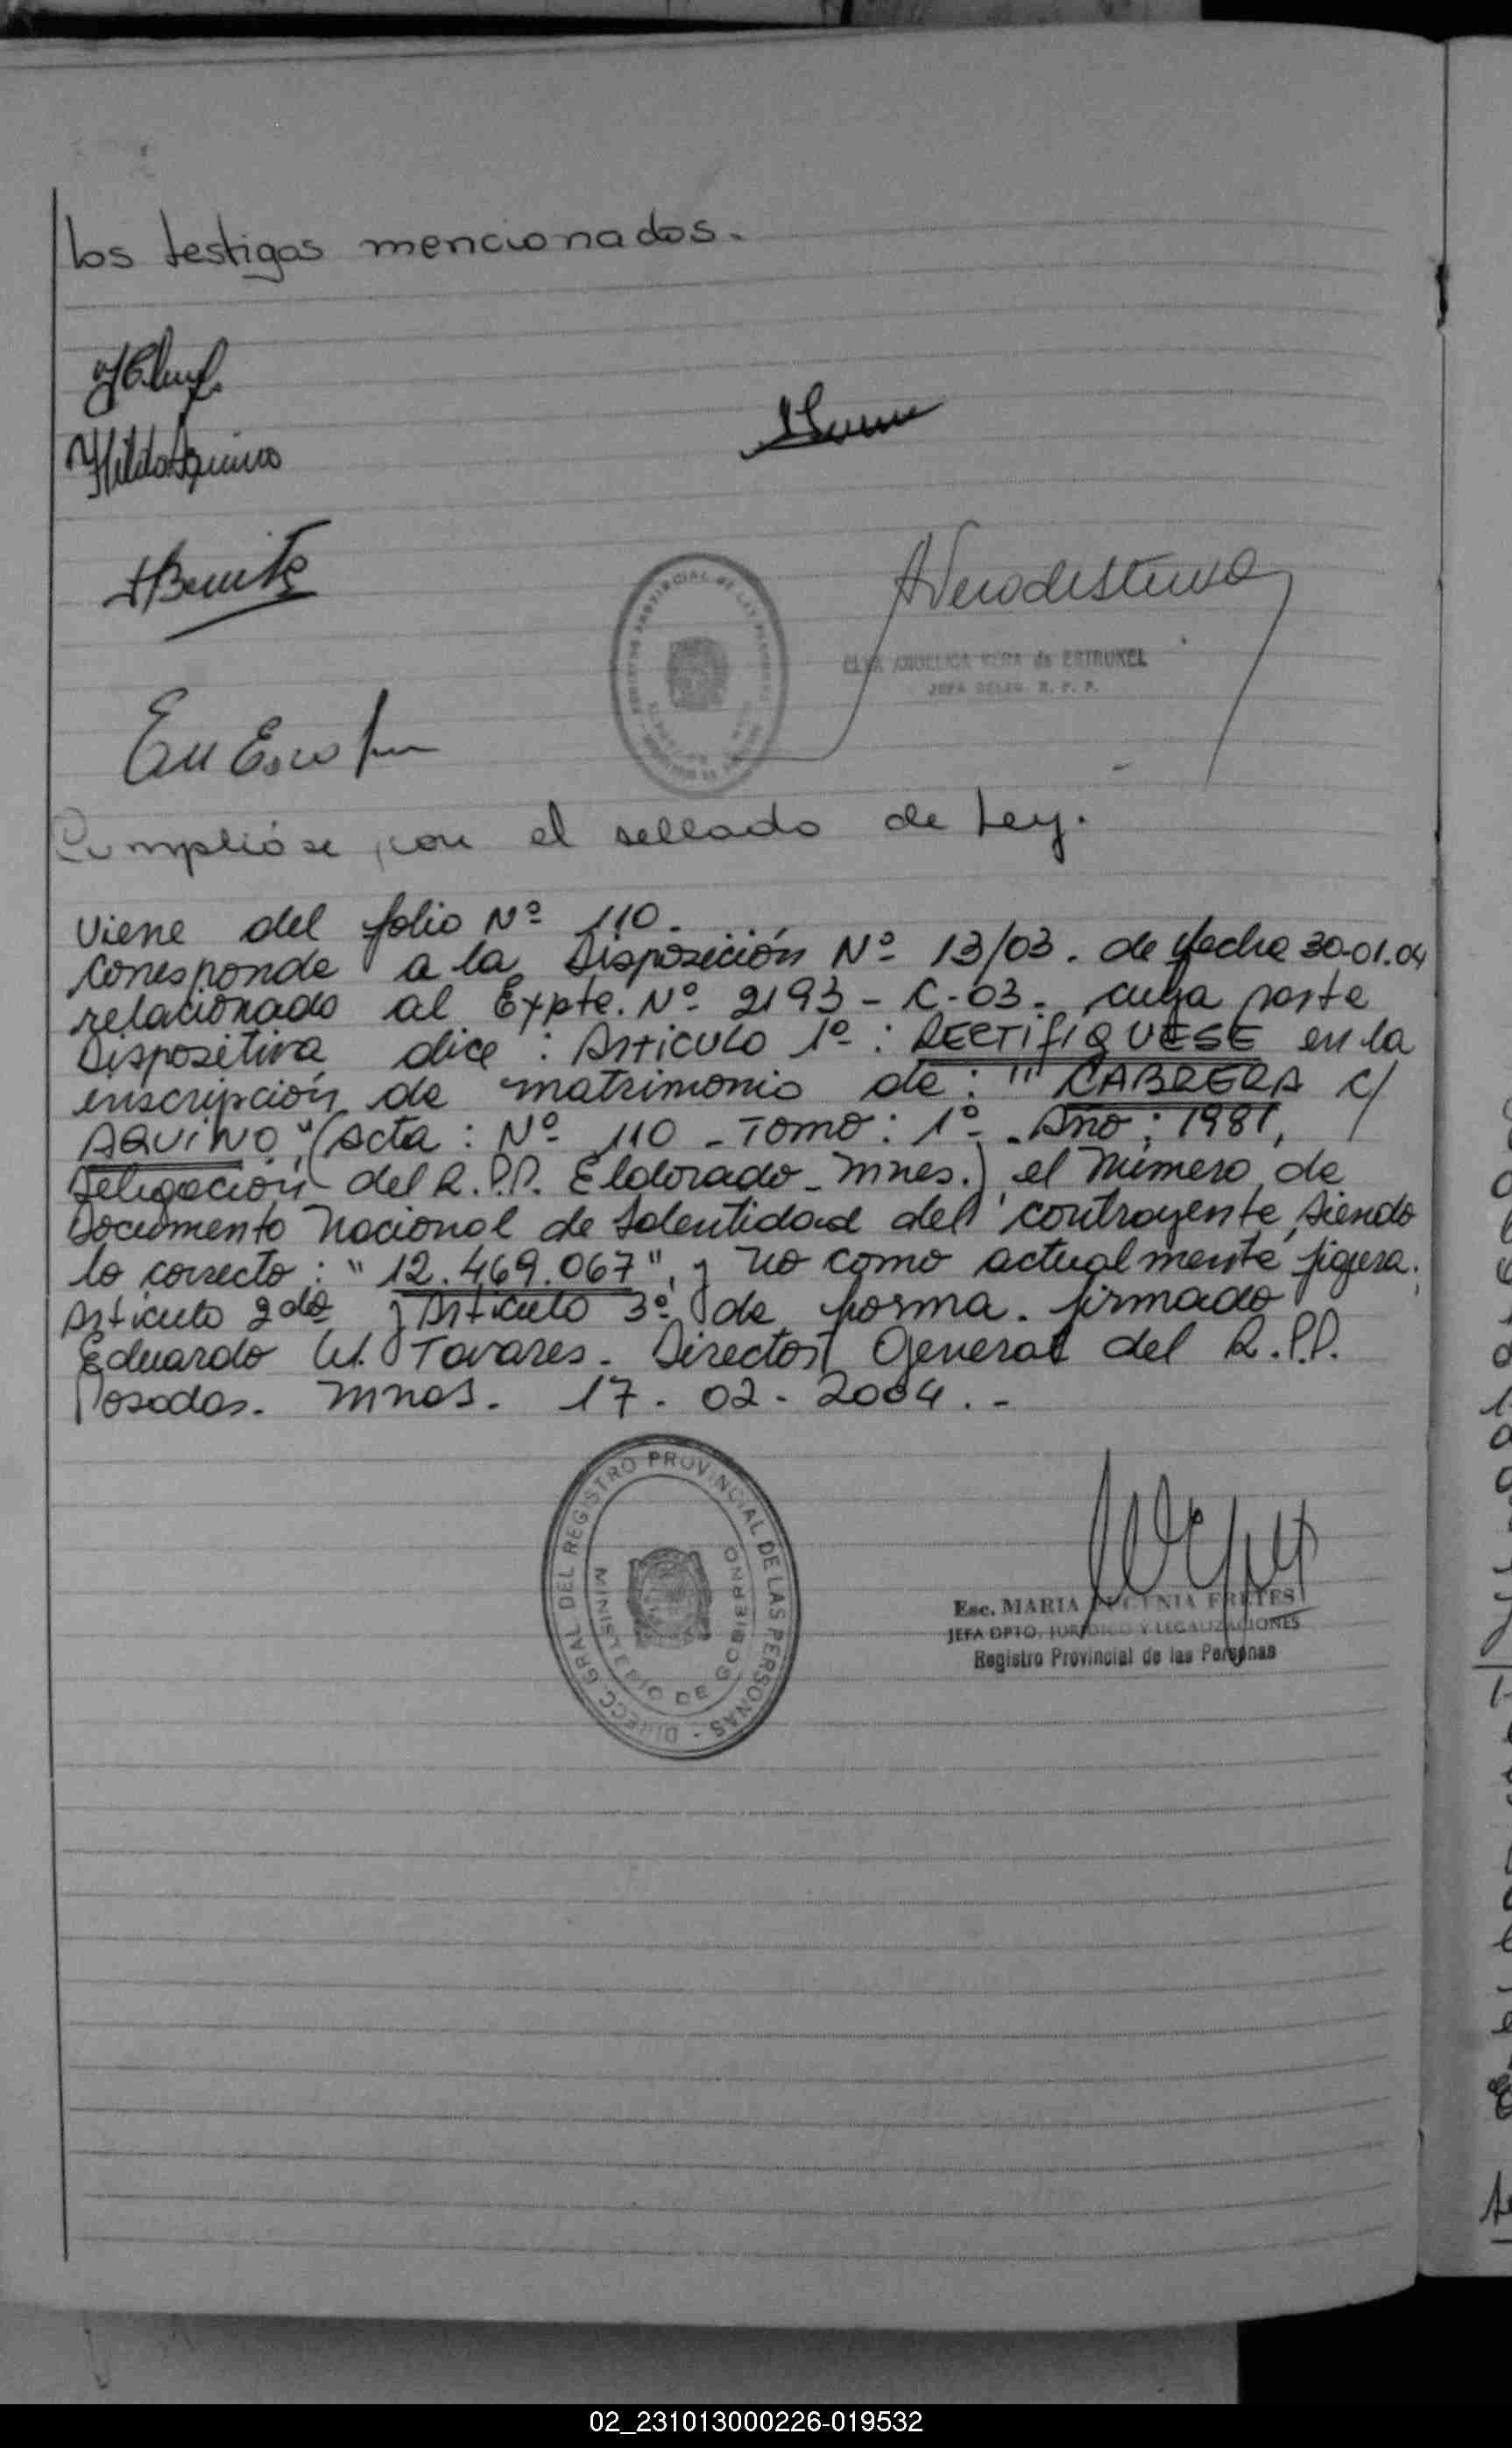 los testigos mencionados.
Hilda Aquino
HBenitz
AVeradestruxel
ELVA ANGELICA VERA de ESTRUXEL
JEFA DELEG. R. P. P.
Cumplióse con el sellado de Ley.
Viene del folio Nº 110.
Corresponde a la Disposición Nº 13/03. de fecha 30-01.04
relacionado al Expte. Nº 2193 - C-03. cuya parte
Dispositiva dice: Articulo 1º: RECTIFIQUESE en la
inscripción de matrimonio de: "CABRERA c/
AQUINO" (Acta: Nº 110 - Tomo: 1º - Año: 1981,
Delegación del R.P.P. Eldorado - Mnes.) el Número de
Documento Nacional de Identidad del contrayente, siendo
lo correcto: "12.469.067", y no como actualmente figura.
Articulo 2do y Articulo 3º de forma. firmado
Eduardo W. Tavares. Director General del R.P.P.
Posadas. Mnes. 17 - 02 - 2004. -
DIRECC. GRAL. DEL REGISTRO PROVINCIAL DE LAS PERSONAS -
MINISTERIO DE GOBIERNO
Esc. MARIA EUGENIA FRETES
JEFA DPTO. JURIDICO Y LEGALIZACIONES
Registro Provincial de las Personas
02_231013000226-019532